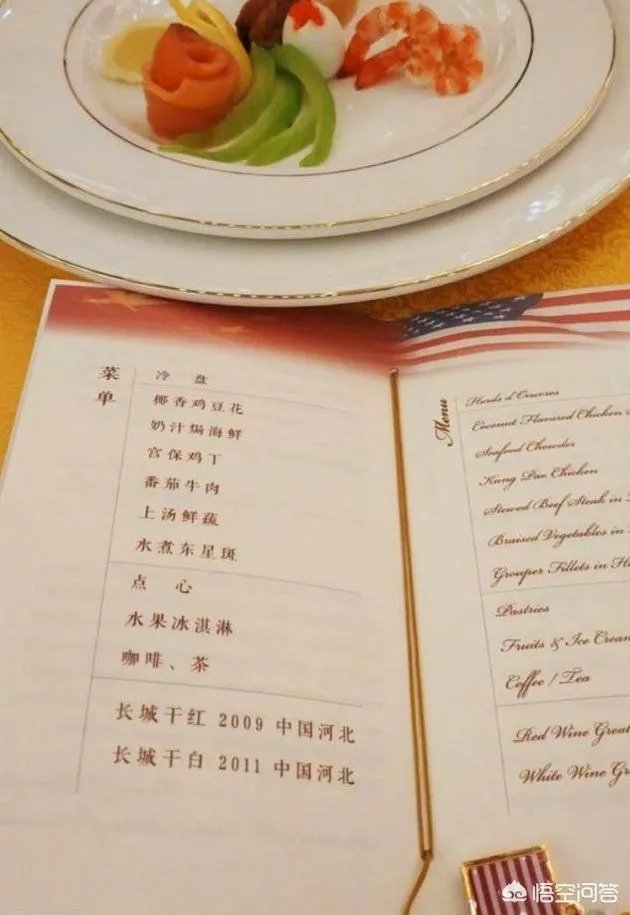 菜单
冷 盘
椰香鸡豆花
奶汁焗海鲜
宫保鸡丁
番茄牛肉
上汤鲜蔬
水煮东星斑
点 心
水果冰淇淋
咖啡、茶
长城干红 2009 中国河北
长城干白 2011 中国河北
Menu
Hords d'Oeuvres
Coconut Flavored Chicken
Seafood Chowder
Kung Pao Chicken
Stewed Beef Steak in
Braised Vegetables in
Grouper Fillets in
Pastries
Fruits & Ice Cream
Coffee / Tea
Red Wine Great
White Wine Great
悟空问答